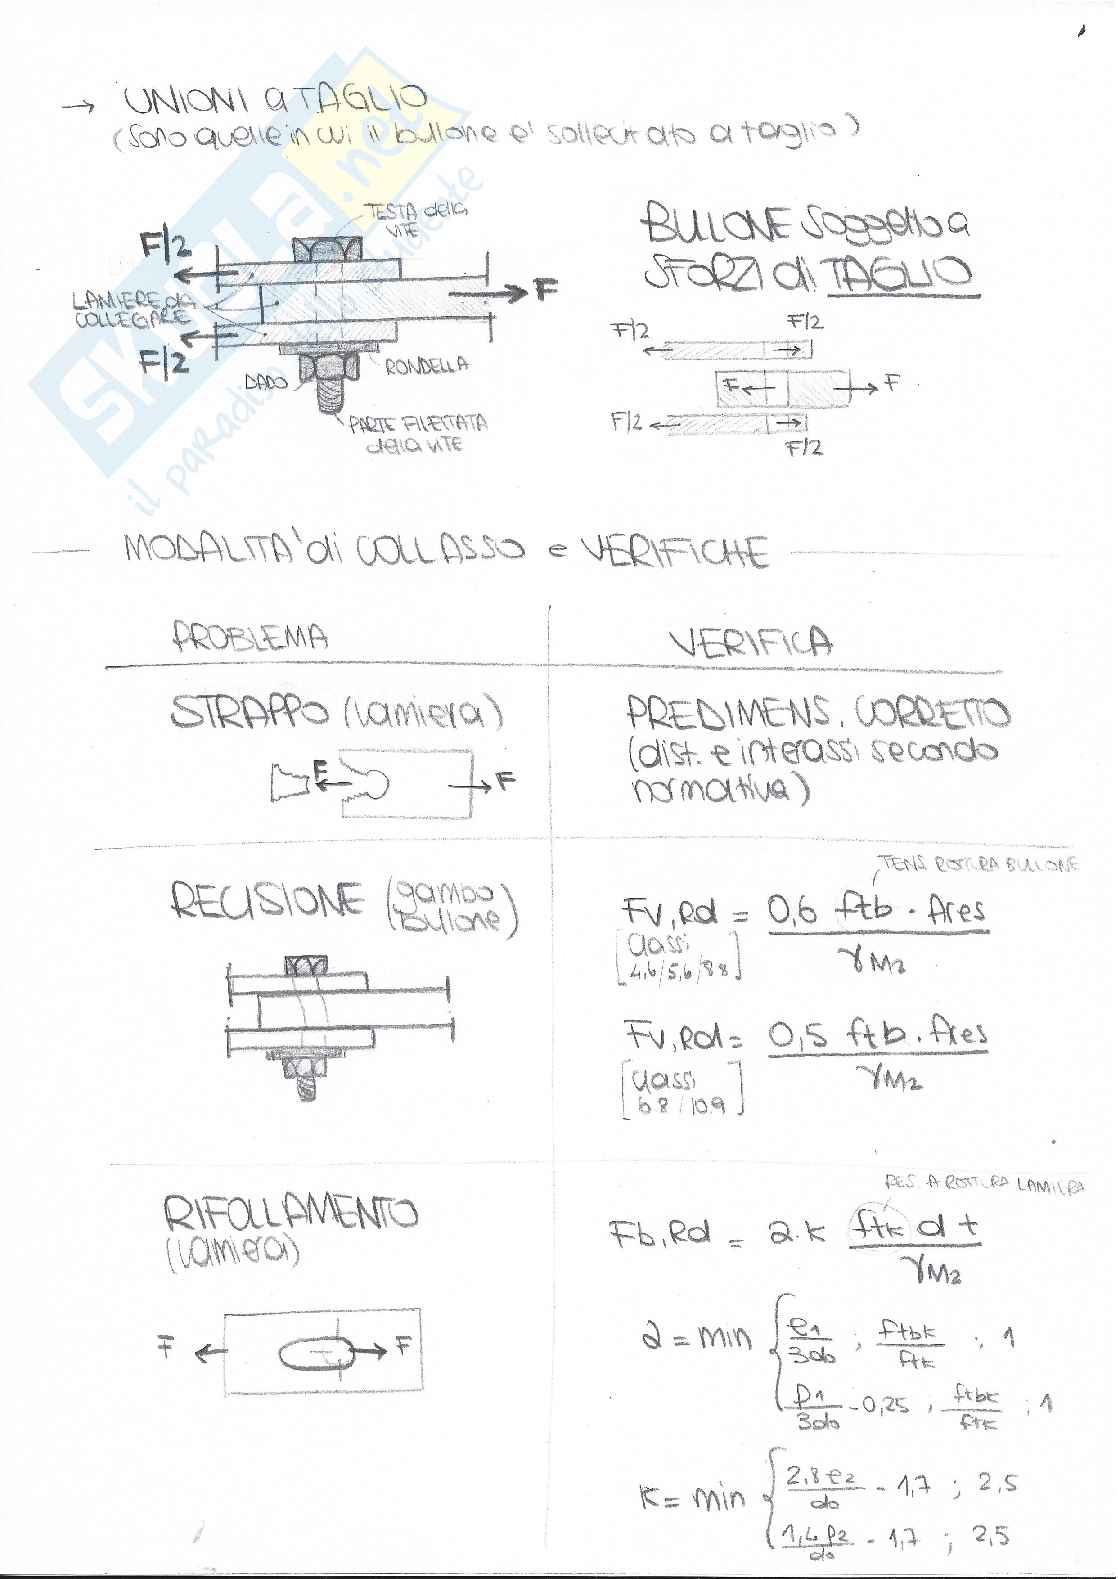 → UNIONI a TAGLIO
(sono quelle in cui il bullone e' sollecitato a taglio)
SKUOLA.net
il paradiso dello studente
TESTA della
VITE
F/2
F
LAMIERE da
COLLEGARE
F/2
DADO
RONDELLA
PARTE FILETTATA
della VITE
BULLONE Soggetto a
SFORZI di TAGLIO
F/2
F/2
F
F
F/2
F/2
MODALITA' di COLLASSO e VERIFICHE
PROBLEMA
VERIFICA
STRAPPO (lamiera)
F
F
PREDIMENS. CORRETTO
(dist. e interassi secondo
normativa)
RECISIONE (gambo
bullone)
TENS. ROTTURA BULLONE
Fv,Rd = 0,6 ftb · Ares
γM2
[Classi
4.6/5.6/8.8]
Fv,Rd = 0,5 ftb · Ares
γM2
[Classi
6.8/10.9]
RIFOLLAMENTO
(lamiera)
F
F
RES. A ROTTURA LAMIERA
Fb,Rd = α·k ftk d t
γM2
α = min { e1/3do ; ftbk/ftk ; 1
p1/3do - 0,25 ; ftbk/ftk ; 1
k = min { 2,8 e2/do - 1,7 ; 2,5
1,4 p2/do - 1,7 ; 2,5